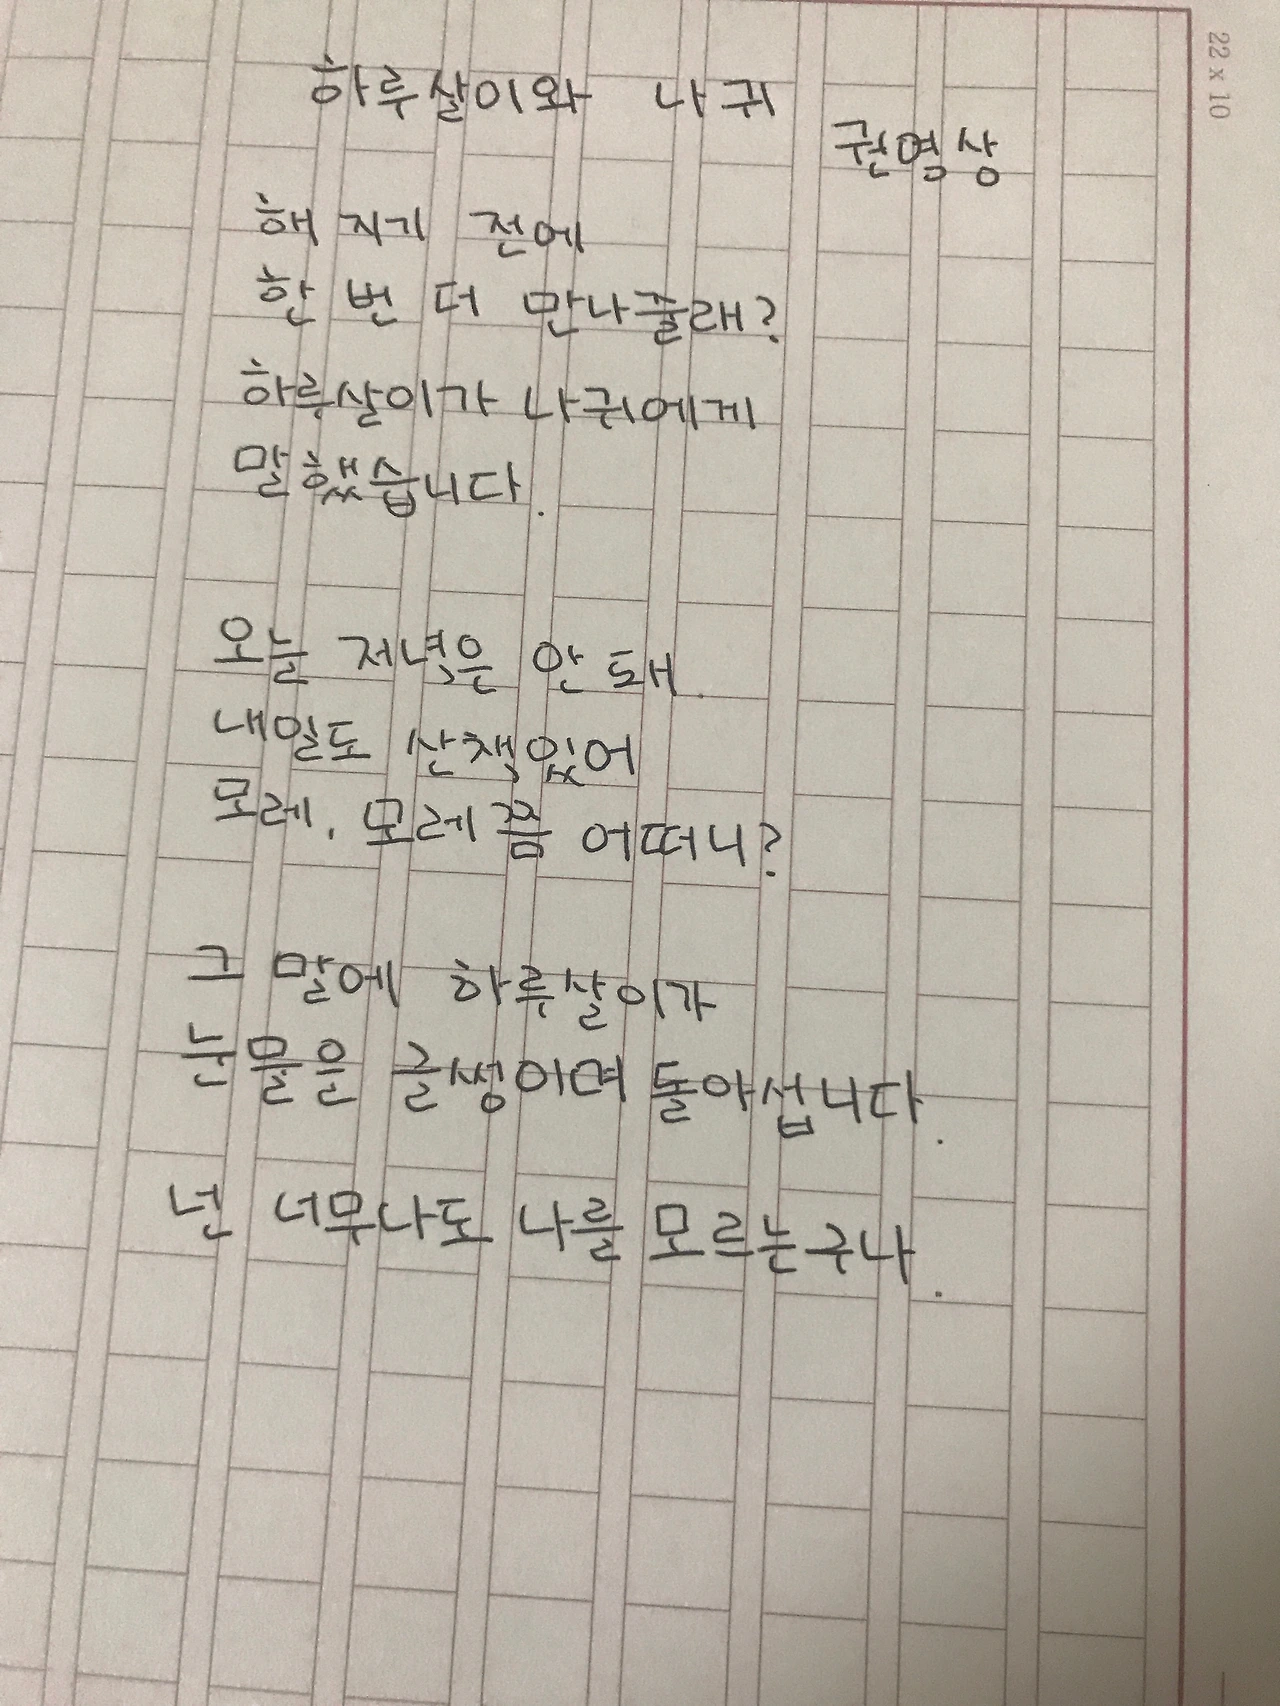 하루살이와 나귀
권영상
해 지기 전에
한 번 더 만나줄래?
하루살이가 나귀에게
말했습니다.
오늘 저녁은 안 돼.
내일도 산책있어
모레, 모레쯤 어떠니?
그 말에 하루살이가
눈물을 글썽이며 돌아섭니다.
넌 너무나도 나를 모르는구나.
22 x 10